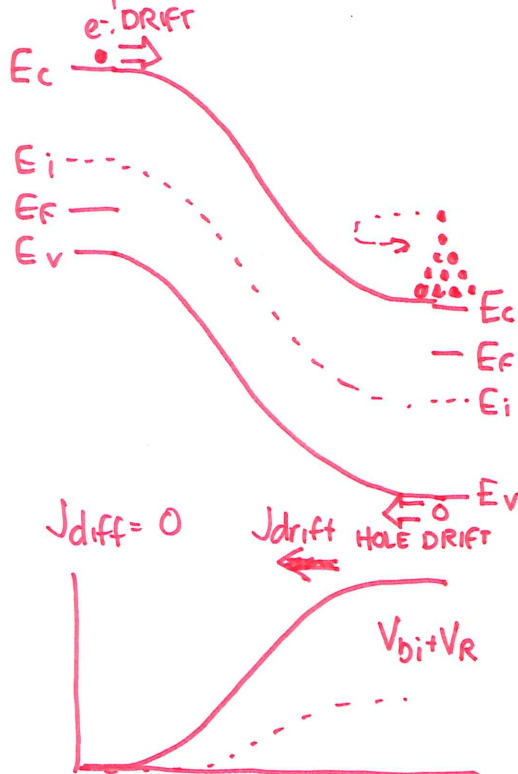 e-! DRIFT
Ec
Ei
EF
Ev
Ec
EF
Ei
Ev
Jdiff = 0
Jdrift
HOLE DRIFT
Vbi+VR